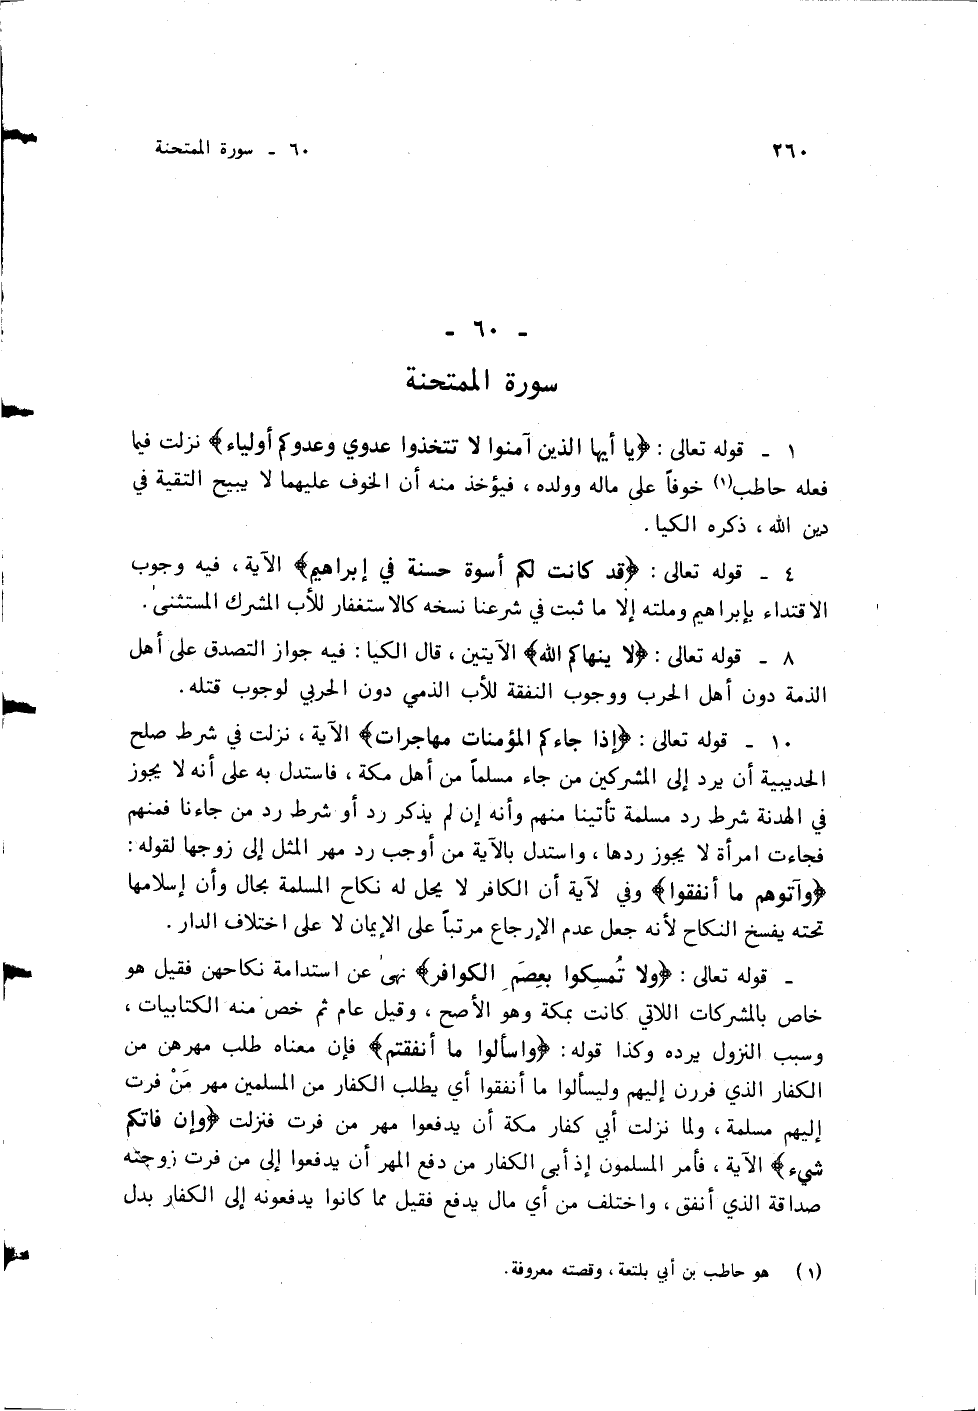 ٢٦٠
٦٠ ـ سورة الممتحنة
ـ ٦٠ ـ
سورة الممتحنة
١ ـ قوله تعالى : ﴿يا أيها الذين آمنوا لا تتخذوا عدوي وعدوكم أولياء﴾ نزلت فيما
فعله حاطب(١) خوفاً على ماله وولده ، فيؤخذ منه أن الخوف عليهما لا يبيح التقية في
دين الله ، ذكره الكيا .
٤ ـ قوله تعالى : ﴿قد كانت لكم أسوة حسنة في إبراهيم﴾ الآية ، فيه وجوب
الاقتداء بإبراهيم وملته إلا ما ثبت في شرعنا نسخه كالاستغفار للأب المشرك المستثنى .
٨ ـ قوله تعالى : ﴿لا ينهاكم الله﴾ الآيتين ، قال الكيا : فيه جواز التصدق على أهل
الذمة دون أهل الحرب ووجوب النفقة للأب الذمي دون الحربي لوجوب قتله .
١٠ ـ قوله تعالى : ﴿إذا جاءكم المؤمنات مهاجرات﴾ الآية ، نزلت في شرط صلح
الحديبية أن يرد إلى المشركين من جاء مسلماً من أهل مكة ، فاستدل به على أنه لا يجوز
في الهدنة شرط رد مسلمة تأتينا منهم وأنه إن لم يذكر رد أو شرط رد من جاءنا فمنهم
فجاءت امرأة لا يجوز ردها ، واستدل بالآية من أوجب رد مهر المثل إلى زوجها لقوله :
﴿وآتوهم ما أنفقوا﴾ وفي لآية أن الكافر لا يحل له نكاح المسلمة بحال وأن إسلامها
تحته يفسخ النكاح لأنه جعل عدم الإرجاع مرتباً على الإيمان لا على اختلاف الدار .
ـ قوله تعالى : ﴿ولا تُمسِكوا بعِصَمِ الكوافر﴾ نهى عن استدامة نكاحهن فقيل هو
خاص بالمشركات اللاتي كانت بمكة وهو الأصح ، وقيل عام ثم خص منه الكتابيات ،
وسبب النزول يرده وكذا قوله : ﴿واسألوا ما أنفقتم﴾ فإن معناه طلب مهرهن من
الكفار الذي فررن إليهم وليسألوا ما أنفقوا أي يطلب الكفار من المسلمين مهر مَنْ فرت
إليهم مسلمة ، ولما نزلت أبي كفار مكة أن يدفعوا مهر من فرت فنزلت ﴿وإن فاتكم
شيء﴾ الآية ، فأمر المسلمون إذ أبى الكفار من دفع المهر أن يدفعوا إلى من فرت زوجته
صداقة الذي أنفق ، واختلف من أي مال يدفع فقيل مما كانوا يدفعونه إلى الكفار بدل
(١) هو حاطب بن أبي بلتعة ، وقصته معروفة .